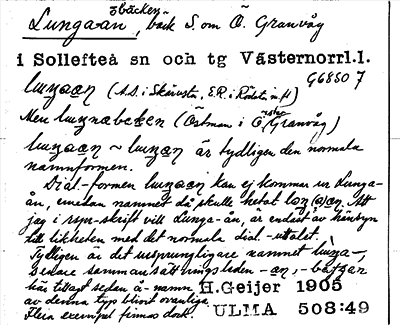 bäcken
Lungaån, bäck S. om Ö. Granvåg
i Sollefteå sn och tg Västernorrl.l.
G6850 7
luŋaa̲n (A.S. i Skärvsta, E.R. i Rödsta, m.fl)
Men luŋnabɛkɛn (Östman i Ö. Granvåg)
luŋaa̲n ~ luŋa̲n är tydligen den normala
namnformen.
Dial-formen luŋaa̲n kan ej komma ur Lunga-
ån, emedan namnet då skulle hetat
jag i rspr-skrift vill Lunga-ån, är endast av hänsyn
till likheten med det normala dial.-uttalet.
Tydligen är det ursprungligare namnet
senare sammansättningsleden -ån, -bäcken
här tillagt sedan å-namn
av denna typ blivit ovanliga.
Flera exempel finnas dock.
H.Geijer 1905
ULMA 508:49